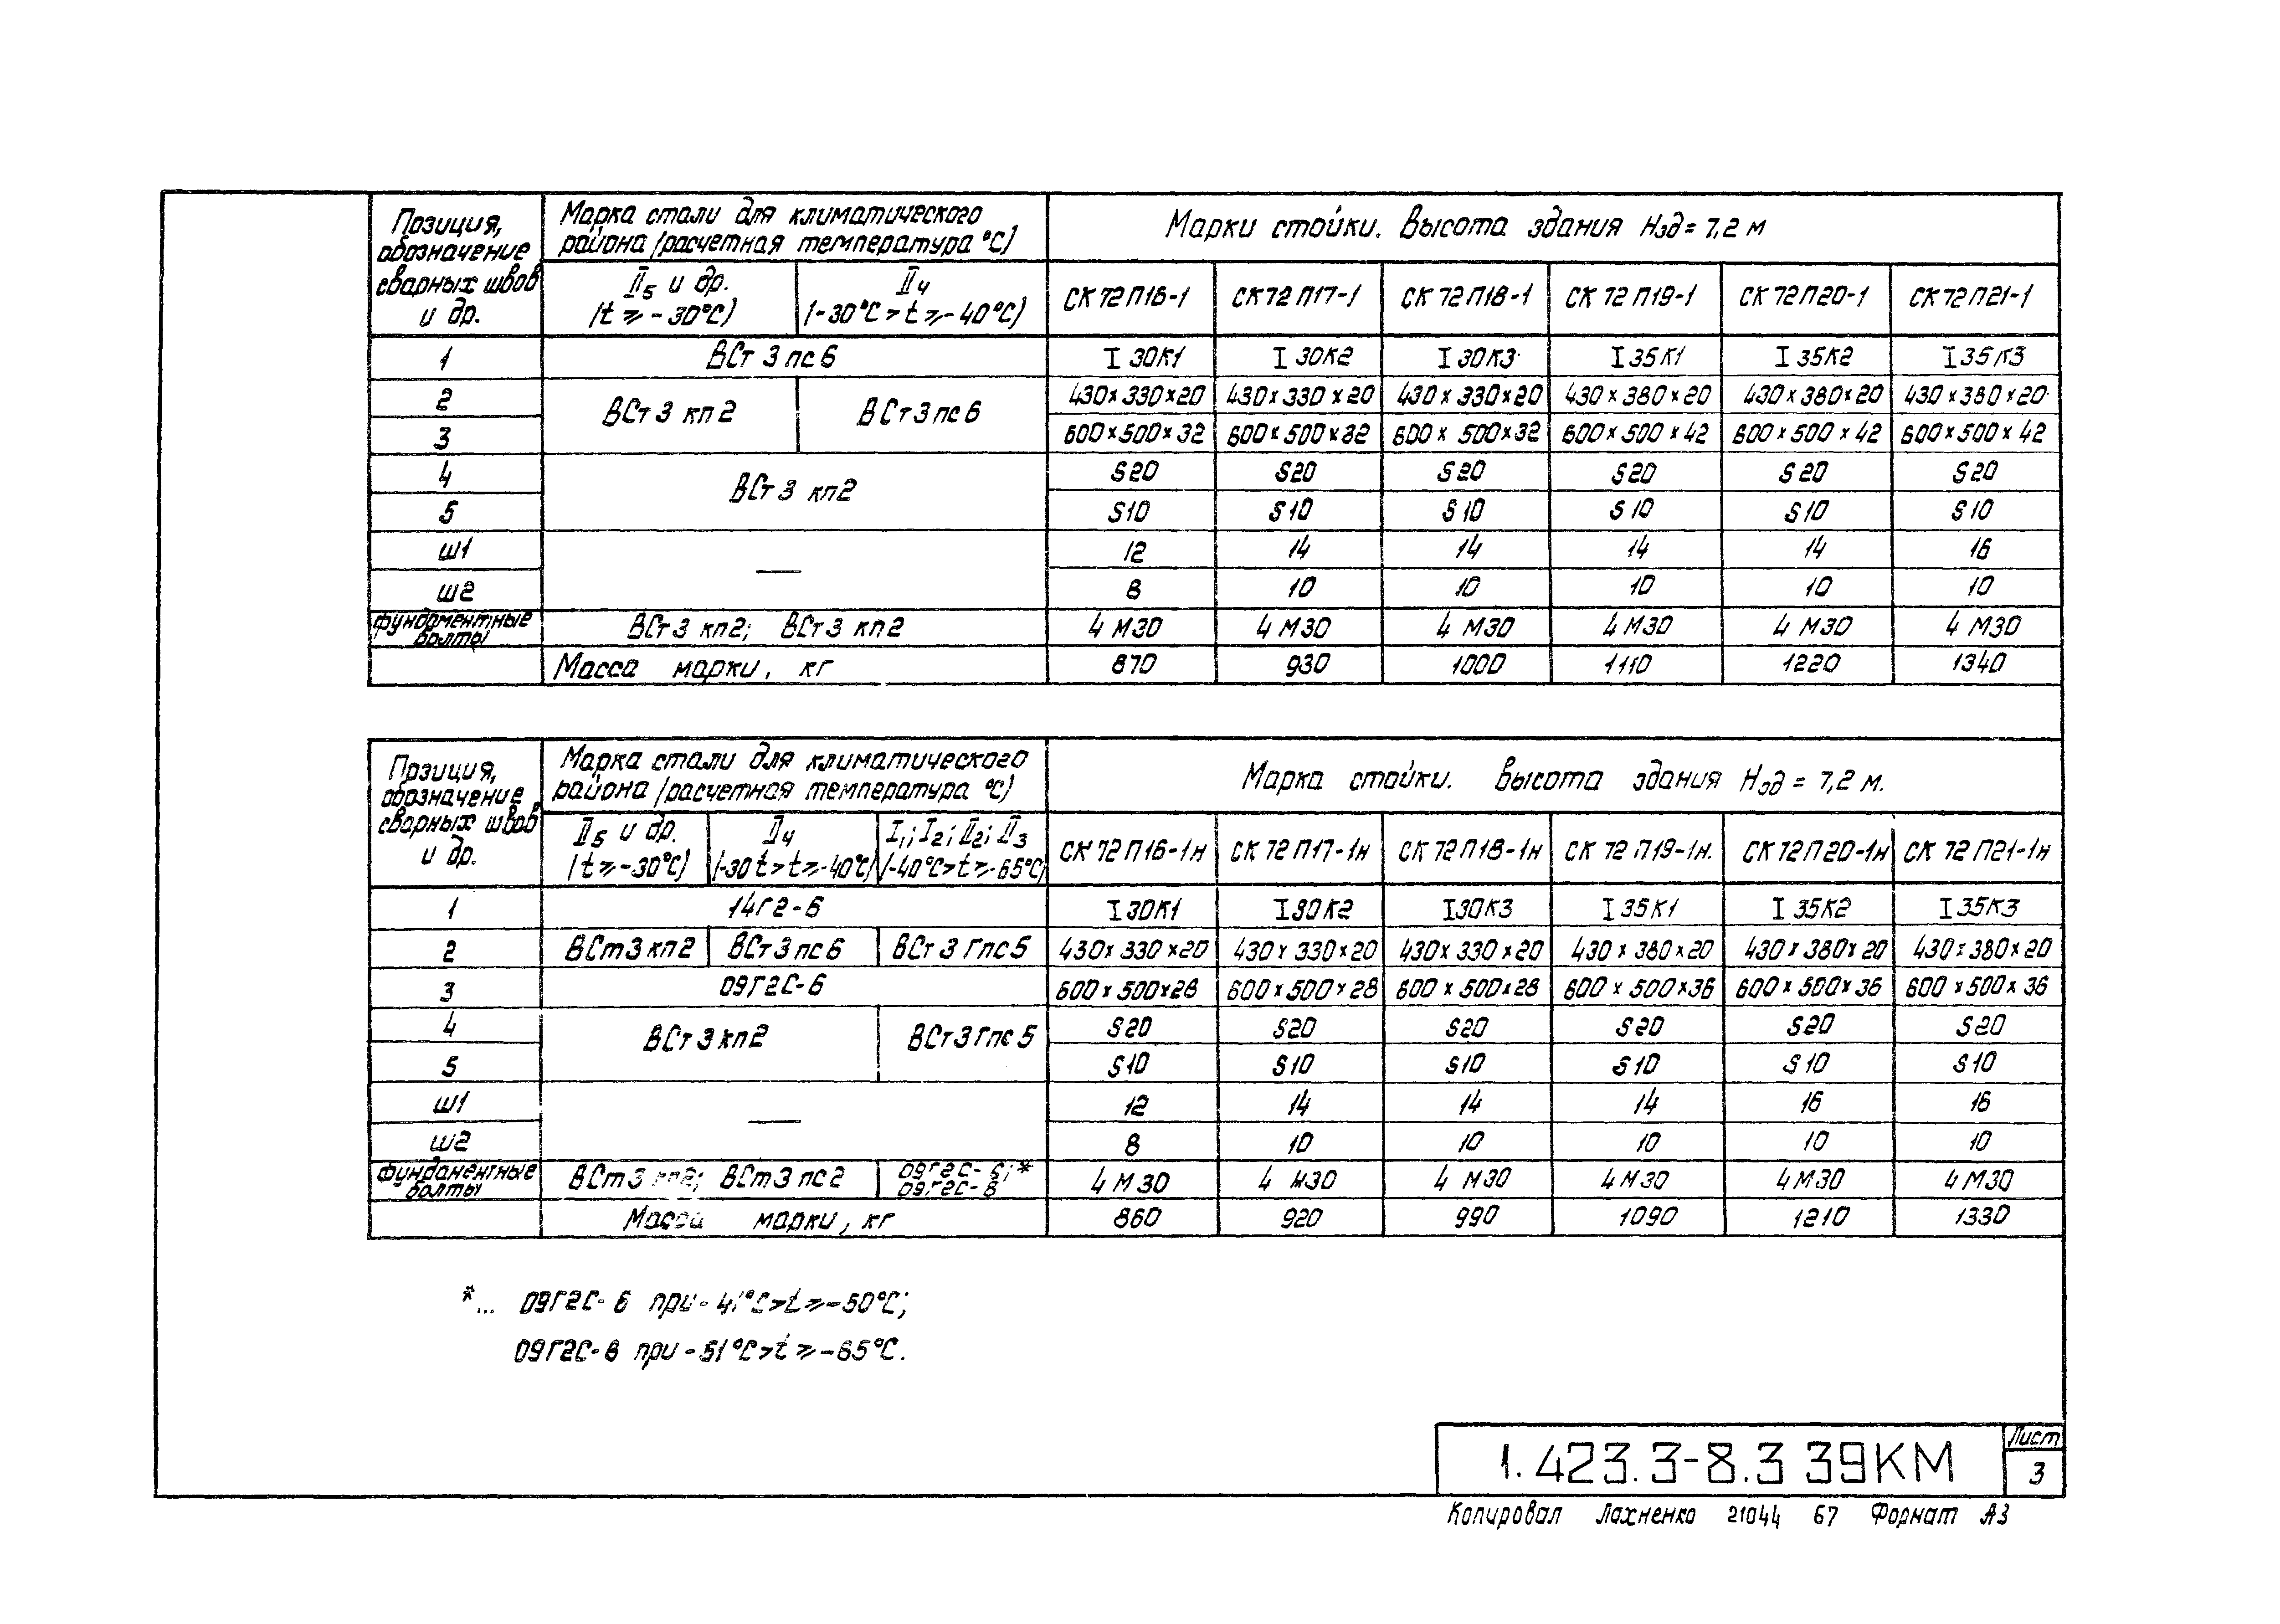 Позиция, обозначение сварных швов и др. | Марка стали для климатического района /расчетная температура °С) | Марки стойки. Высота здания Нзд = 7,2 м
II5 и др. (t ≥ -30°С) | II4 (-30°С > t ≥ -40°С) | СК 72 П16-1 | СК 72 П17-1 | СК 72 П18-1 | СК 72 П19-1 | СК 72 П20-1 | СК 72 П21-1
1 | ВСт 3 пс 6 | I 30К1 | I 30К2 | I 30К3 | I 35К1 | I 35К2 | I 35К3
2 | ВСт 3 кп 2 | ВСт 3 пс 6 | 430×330×20 | 430×330×20 | 430×330×20 | 430×380×20 | 430×380×20 | 430×380×20
3 | 600×500×32 | 600×500×32 | 600×500×32 | 600×500×42 | 600×500×42 | 600×500×42
4 | ВСт 3 кп 2 | S20 | S20 | S20 | S20 | S20 | S20
5 | S10 | S10 | S10 | S10 | S10 | S10
ш1 | — | 12 | 14 | 14 | 14 | 14 | 16
ш2 | 8 | 10 | 10 | 10 | 10 | 10
фундаментные болты | ВСт 3 кп 2; ВСт 3 кп 2 | 4 М30 | 4 М30 | 4 М30 | 4 М30 | 4 М30 | 4 М30
Масса марки, кг | 870 | 930 | 1000 | 1110 | 1220 | 1340
Позиция, обозначение сварных швов и др. | Марка стали для климатического района /расчетная температура °С) | Марка стойки. Высота здания Нзд = 7,2 м.
II5 и др. (t ≥ -30°С) | II4 (-30 t > t ≥ -40°С) | I1; I2; II2; II3 (-40°С > t ≥ -65°С) | СК 72 П16-1н | СК 72 П17-1н | СК 72 П18-1н | СК 72 П19-1н. | СК 72 П20-1н | СК 72 П21-1н
1 | 14Г2-6 | I 30К1 | I 30К2 | I 30К3 | I 35К1 | I 35К2 | I 35К3
2 | ВСт 3 кп 2 | ВСт 3 пс 6 | ВСт 3 Гпс 5 | 430×330×20 | 430×330×20 | 430×330×20 | 430×380×20 | 430×380×20 | 430×380×20
3 | 09Г2С-6 | 600×500×28 | 600×500×28 | 600×500×28 | 600×500×36 | 600×500×36 | 600×500×36
4 | ВСт 3 кп 2 | ВСт 3 Гпс 5 | S20 | S20 | S20 | S20 | S20 | S20
5 | S10 | S10 | S10 | S10 | S10 | S10
ш1 | — | 12 | 14 | 14 | 14 | 16 | 16
ш2 | 8 | 10 | 10 | 10 | 10 | 10
фундаментные болты | ВСт 3; ВСт 3 пс 2 | 09Г2С-6;* 09Г2С-8 | 4 М30 | 4 М30 | 4 М30 | 4 М30 | 4 М30 | 4 М30
Масса марки, кг | 860 | 920 | 990 | 1090 | 1210 | 1330
*... 09Г2С-6 при -41°С > t ≥ -50°С;
09Г2С-8 при -51°С > t ≥ -65°С.
1.423.3-8.3 39КМ
Лист
3
Копировал Лахненко 21044 67 Формат А3